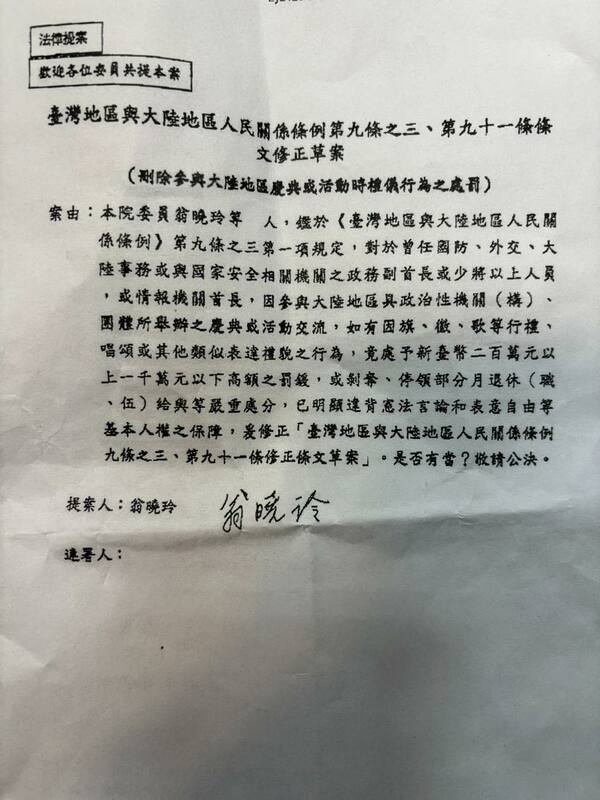 法律提案
歡迎各位委員共提本案
臺灣地區與大陸地區人民關係條例第九條之三、第九十一條條
文修正草案
（刪除參與大陸地區慶典或活動時禮儀行為之處罰）
案由：本院委員翁曉玲等　人，鑑於《臺灣地區與大陸地區人民關
係條例》第九條之三第一項規定，對於曾任國防、外交、大
陸事務或與國家安全相關機關之政務副首長或少將以上人員
，或情報機關首長，因參與大陸地區具政治性機關（構）、
團體所舉辦之慶典或活動交流，如有因旗、徽、歌等行禮、
唱頌或其他類似表達禮貌之行為，竟處予新臺幣二百萬元以
上一千萬元以下高額之罰鍰，或剝奪、停領部分月退休（職
、伍）給與等嚴重處分，已明顯違背憲法言論和表意自由等
基本人權之保障，爰修正「臺灣地區與大陸地區人民關係條例
九條之三、第九十一條修正條文草案」。是否有當？敬請公決。
提案人：翁曉玲 翁曉玲
連署人：